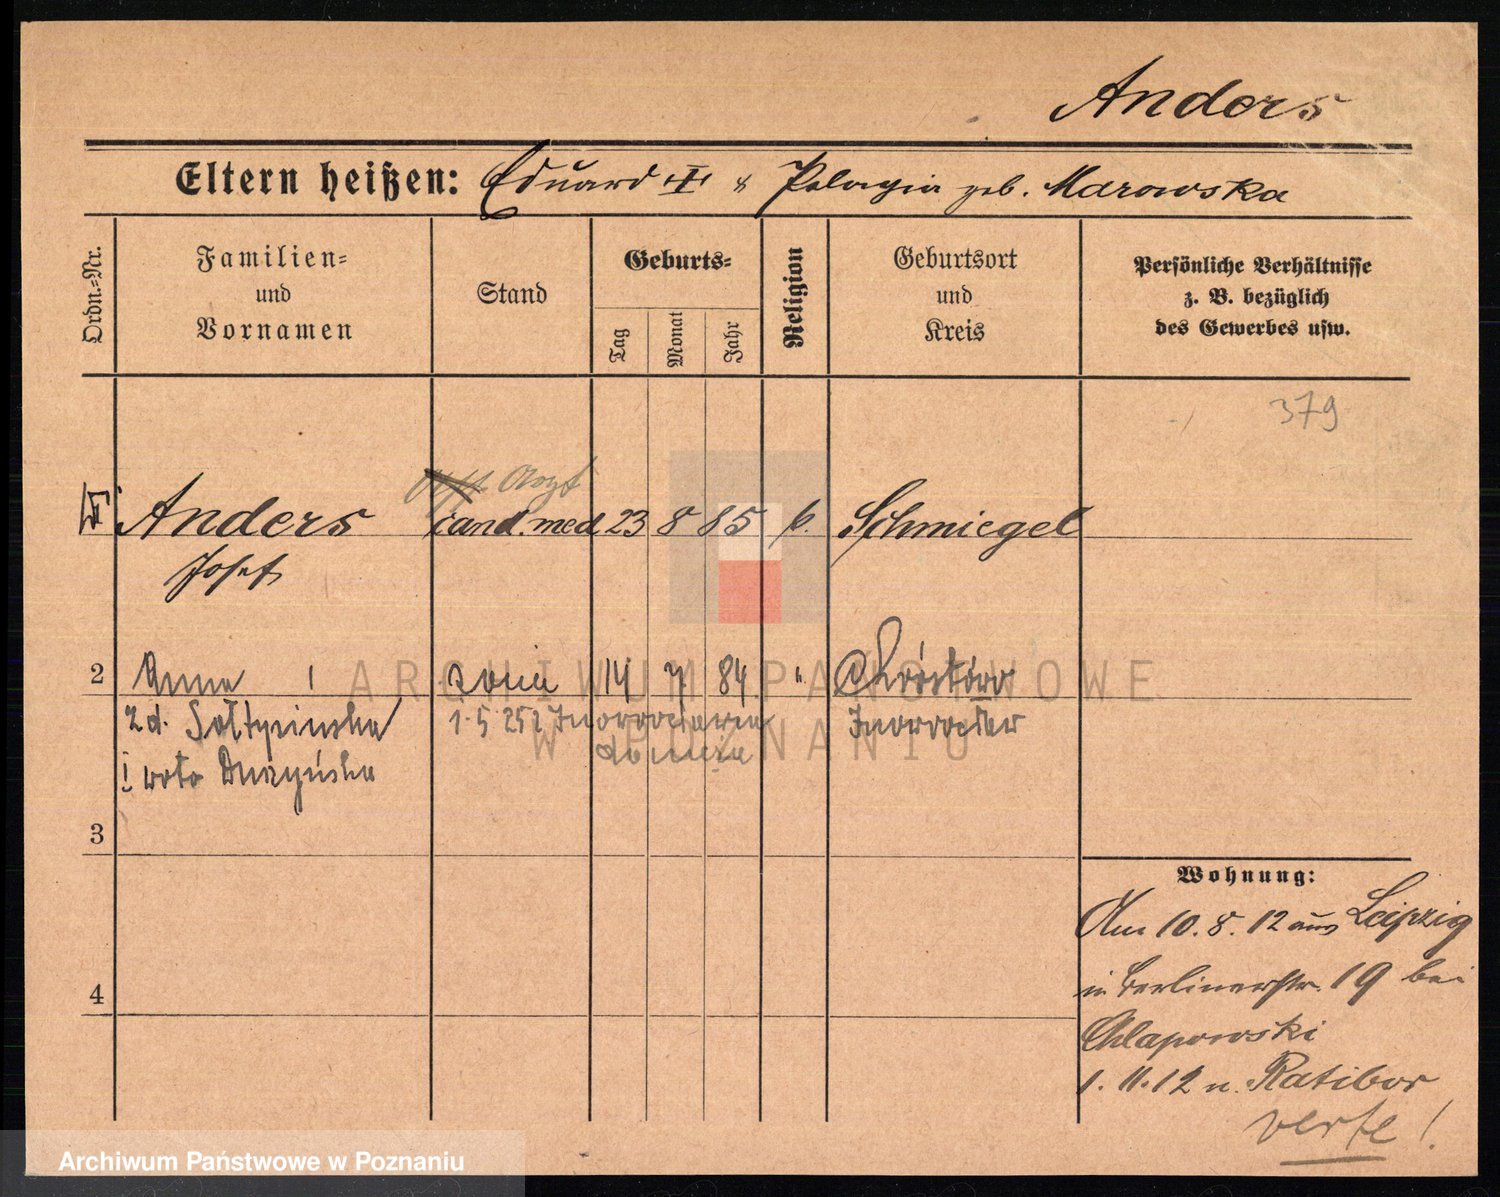 Anders
Eltern heißen: Eduard I & Pelagia geb. Marowska
Ordn.-Nr.
Familien=
und
Vornamen
Stand
Geburts=
Tag
Monat
Jahr
Religion
Geburtsort
und
Kreis
Persönliche Verhältnisse
z. B. bezüglich
des Gewerbes usw.
379
Arzt
Anders cand. med 23 8 85 k. Schmiegel
Josef
2 Anna żona 14 7 84 "
zd. Sołtysińska 1.5.25 z Inowrocławia
I voto
3
4
ARCHIWUM PAŃSTWOWE
W POZNANIU
Wohnung:
Am 10. 8. 12 aus Leipzig
in Berlinerstr. 19 bei
Chlapowski
1. 11. 12 n. Ratibor
verte!
Archiwum Państwowe w Poznaniu